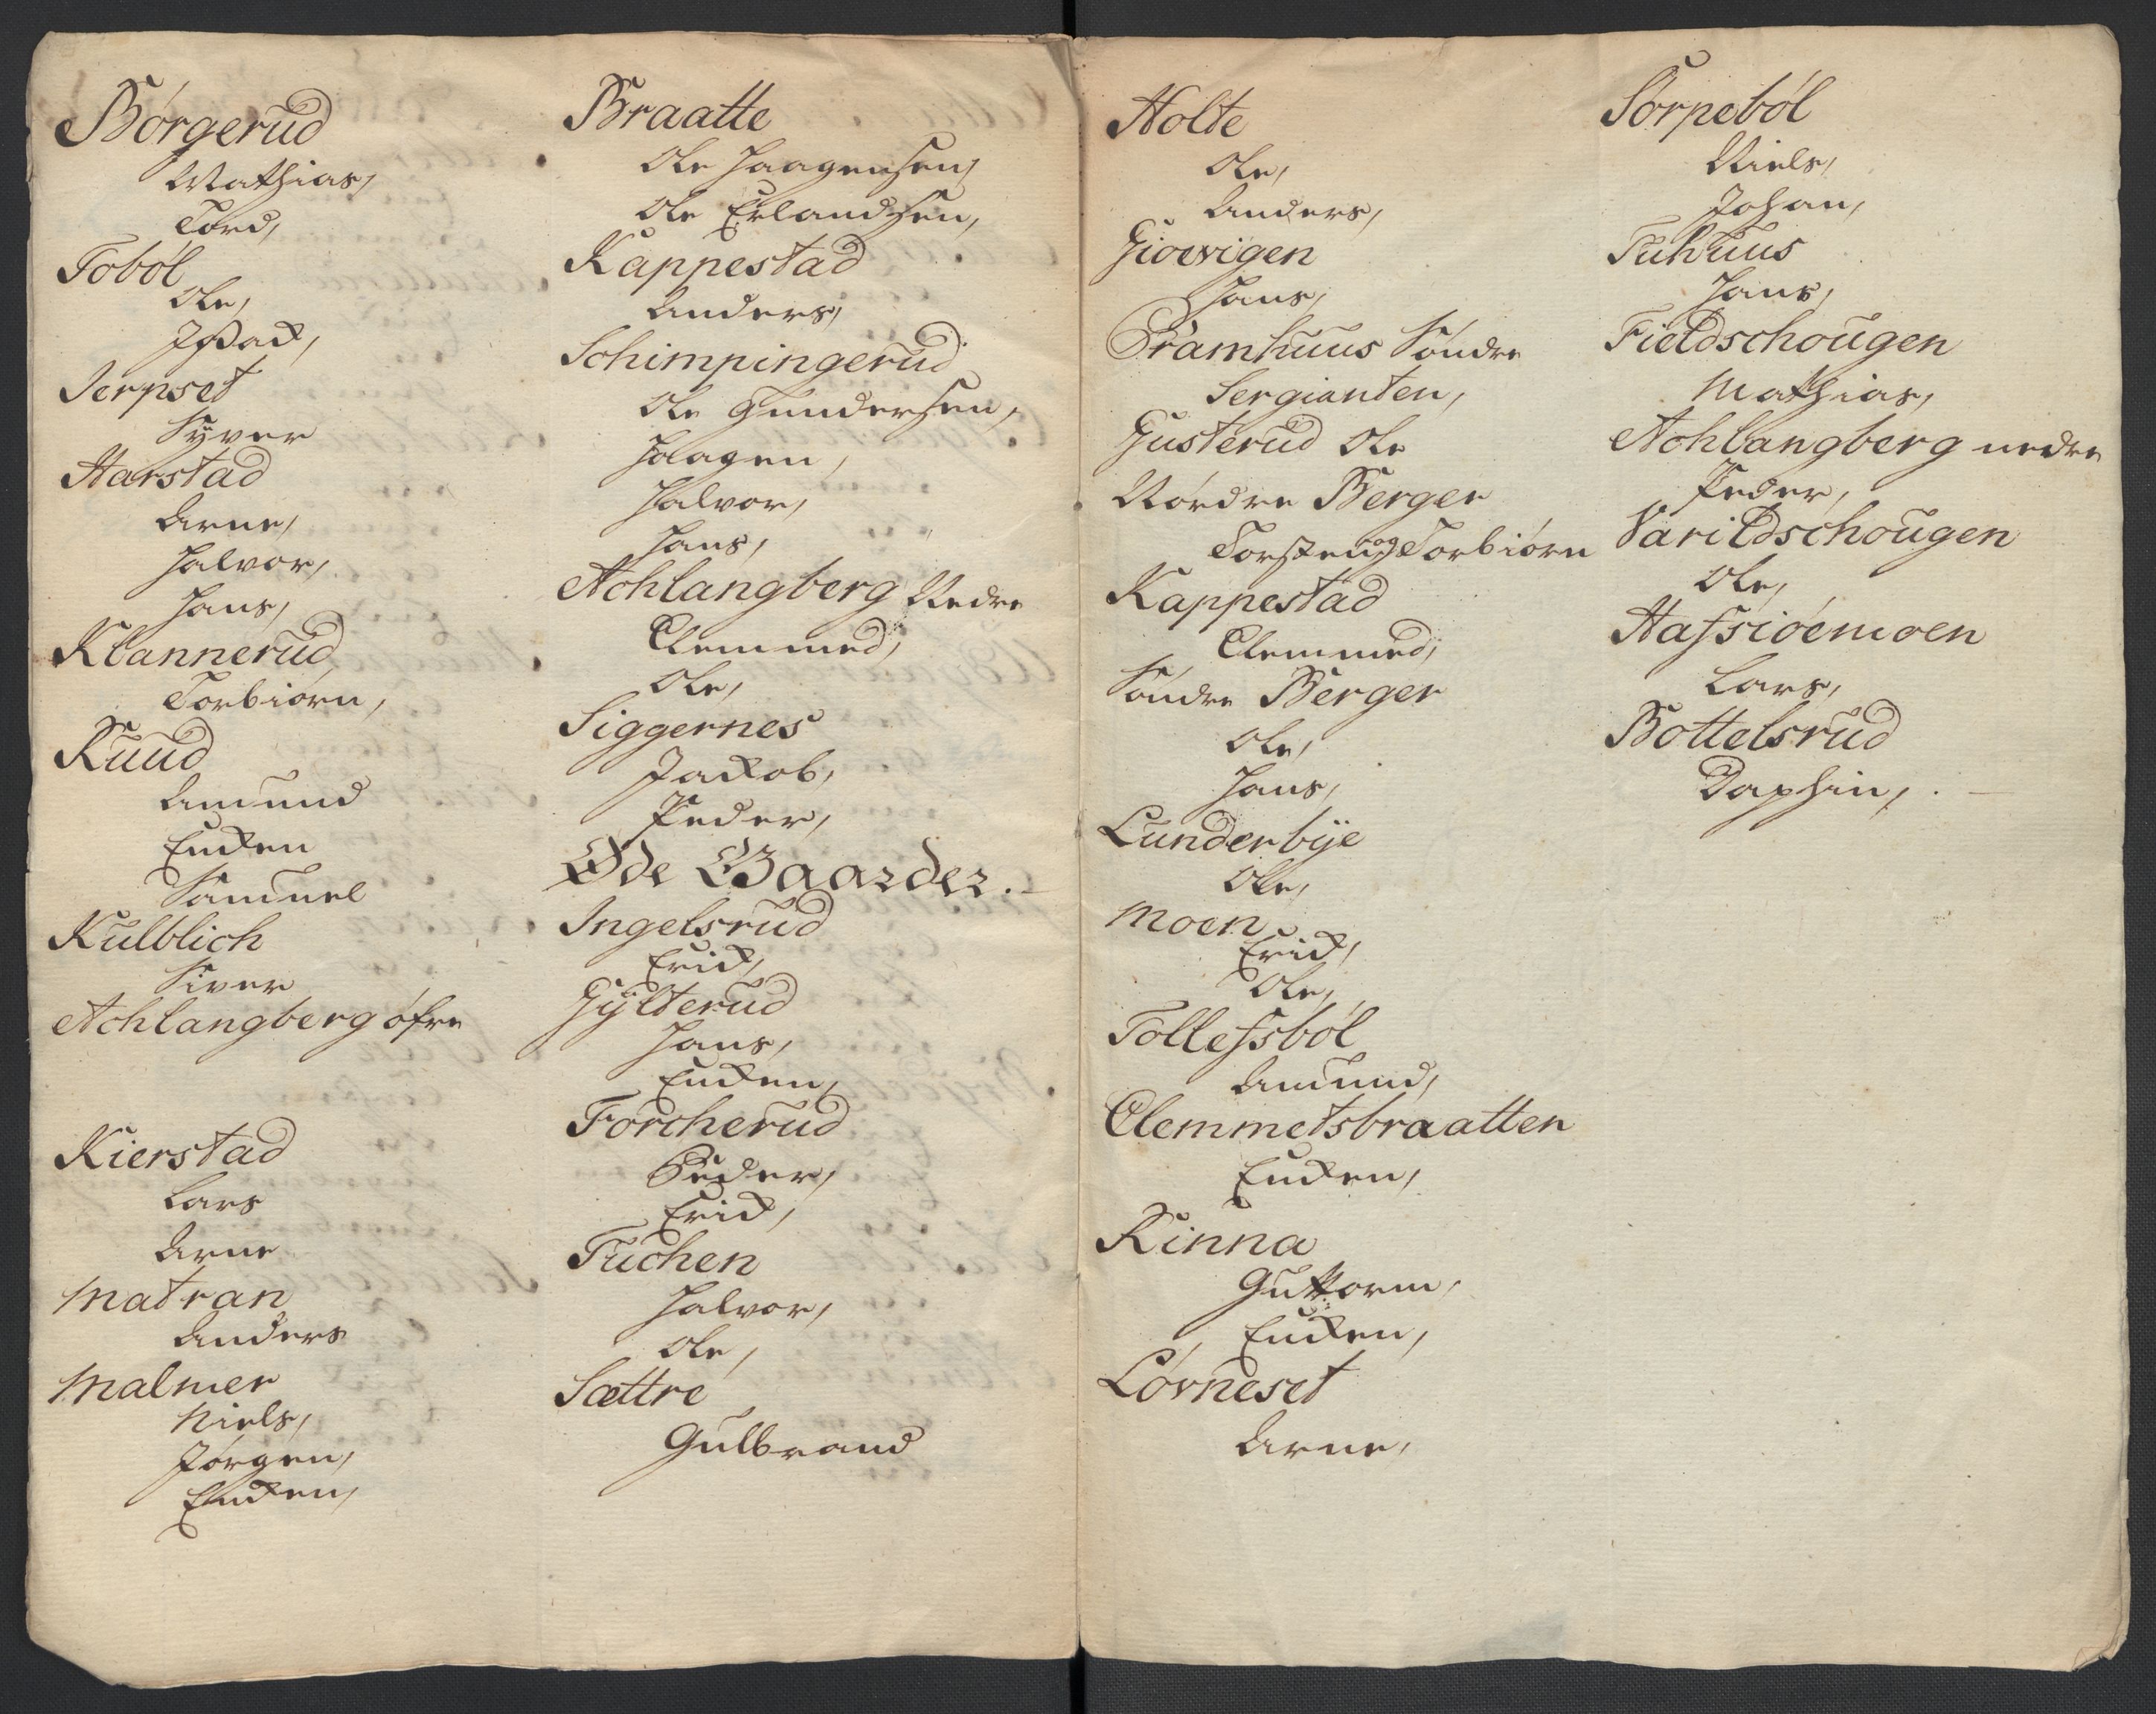 Børgerud
Mathias,
Tord,
Tobøl
Ole,
Isack,
Jerpset
Syver
Harstad
Arne,
Halvor,
Hans,
Klannerud
Torbiørn,
Ruud
Amund
Encken
Samuel
Kulblich
Siver
Achlangberg øfre
Kierstad
Lars
Arne
Matran
Anders
Malmer
Niels,
Jørgen,
Encken,
Braatte
Ole Haagensen,
Ole Erlandsen,
Kappestad
Anders,
Schimpingerud
Ole Gundersen,
Haagen,
Halvor,
Hans,
Achlangberg Nedre
Clemmed,
Ole,
Siggernes
Jackob,
Peder,
Øde Gaarder.
Ingelsrud
Erick,
Gylterud
Hans,
Encken,
Forcherud
Peder,
Erick,
Tuchen
Halvor,
Ole,
Sættre
Gulbrand
Holte
Ole,
Anders,
Giøevigen
Hans,
Pramhuus Søndre
Sergianten,
Gusterud Ole
Nordre Berger
Torsten og Torbiørn
Kappestad
Clemmed,
Søndre Berger
Ole,
Hans,
Lunderbye
Ole,
Moen
Erick,
Ole,
Tollefsbøl
Amund,
Clemmetsbraatten
Encken,
Rinna
Guttorm,
Encken,
Løvneset
Arne,
Torpebøl
Niels,
Johan,
Tuhuus
Hans,
Fieldschougen
Mathias,
Achlangberg nedre
Peder,
Varildschougen
Ole,
Hafsiøemoen
Lars,
Bottelsrud
Daphin,